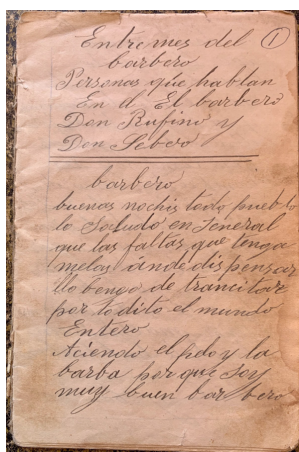 Entremes del ①
barbero
Personas que hablan
En el El barbero
Don Rufino y
Don Sebero
barbero
buenas nochis todo pueblo
lo Saludo en Jeneral
que las faltas que tenga
melas ánde dispensar
llo bengo de trancitar
por todito el mundo
Entero
Aciendo el pelo y la
barba porque Soy
muy buen barbero